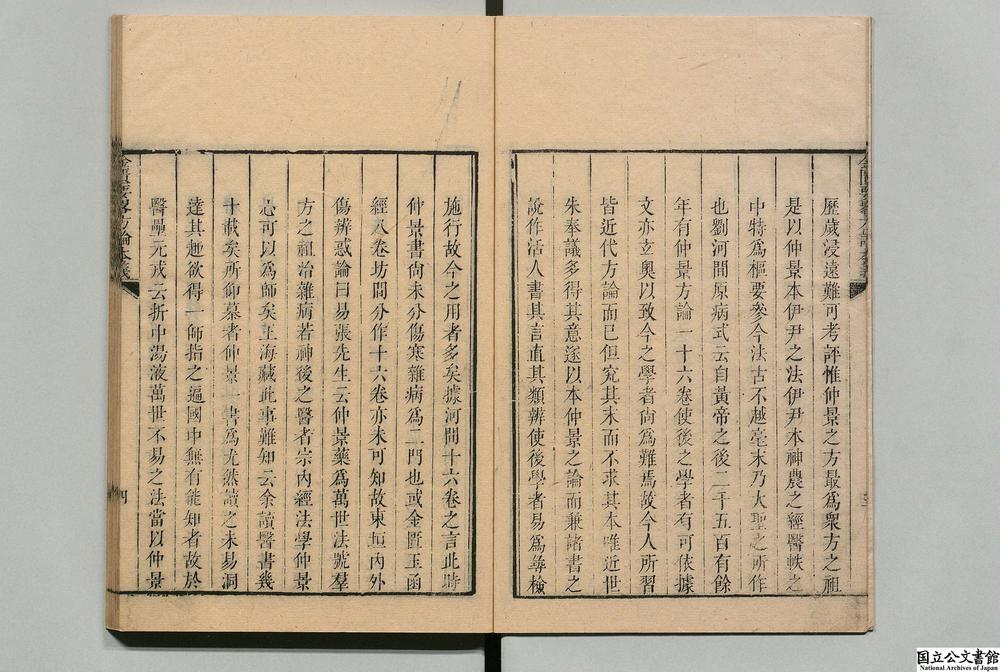 歷歲浸遠難可考評惟仲景之方最爲衆方之祖
是以仲景本伊尹之法伊尹本神農之經醫帙之
中特爲樞要參今法古不越毫末乃大聖之所作
也劉河間原病式云自黃帝之後二千五百有餘
年有仲景方論一十六卷使後之學者有可依據
文亦玄奧以致今之學者尚爲難焉故今人所習
皆近代方論而已但究其末而不求其本唯近世
朱奉議多得其意遂以本仲景之論而兼諸書之
說作活人書其言直其類辨使後學者易爲尋檢
施行故今之用者多矣據河間十六卷之言此時
仲景書尚未分傷寒雜病爲二門也或金匱玉函
經八卷坊間分作十六卷亦未可知故東垣內外
傷辨惑論曰易張先生云仲景藥爲萬世法號羣
方之祖治雜病若神後之醫者宗內經法學仲景
心可以爲師矣王海藏此事難知云余讀醫書幾
十載矣所仰慕者仲景一書爲尤然讀之未易洞
達其趣欲得一師指之遍國中無有能知者故於
醫壘元戎云折中湯液萬世不易之法當以仲景
四
金匱要畧方論本義
国立公文書館
National Archives of Japan